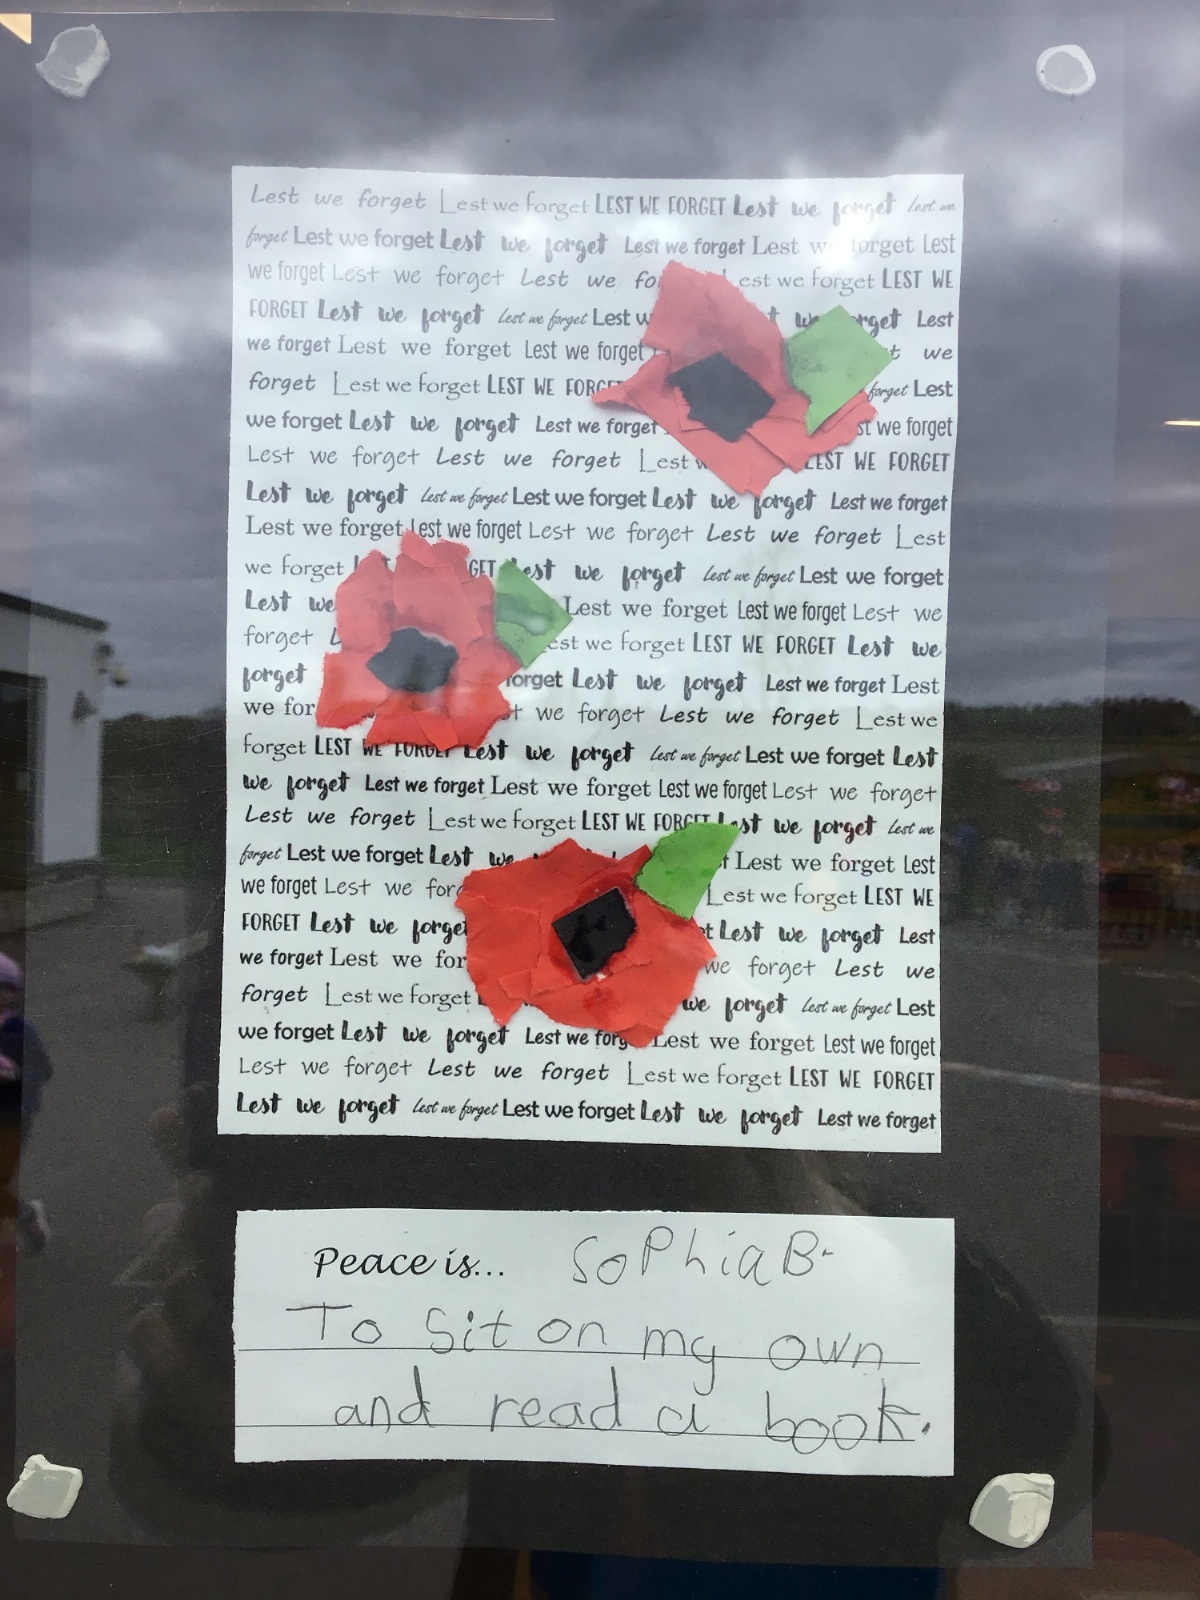 Lest we forget Lest we forget LEST WE FORGET Lest we forget Lest we
forget Lest we forget Lest we forget Lest we forget Lest we forget Lest
we forget Lest we forget Lest we fo est we forget LEST WE
FORGET Lest we forget Lest we forget Lest w t we rget Lest
we forget Lest we forget Lest we forget t we
forget Lest we forget LEST WE FORGE forget Lest
we forget Lest we forget Lest we forget st we forget
Lest we forget Lest we forget Lest w LEST WE FORGET
Lest we forget Lest we forget Lest we forget Lest we forget Lest we forget
Lest we forget Lest we forget Lest we forget Lest we forget Lest
we forget GET Lest we forget Lest we forget Lest we forget
Lest we Lest we forget Lest we forget Lest we
forget L est we forget LEST WE FORGET Lest we
forget forget Lest we forget Lest we forget Lest
we for t we forget Lest we forget Lest we
forget LEST WE FORGET Lest we forget Lest we forget Lest we forget Lest
we forget Lest we forget Lest we forget Lest we forget Lest we forget
Lest we forget Lest we forget LEST WE FORGET Lest we forget Lest we
forget Lest we forget Lest we t Lest we forget Lest
we forget Lest we forg Lest we forget LEST WE
FORGET Lest we forget et Lest we forget Lest
we forget Lest we for we forget Lest we
forget Lest we forget we forget Lest we forget Lest
we forget Lest we forget Lest we forg Lest we forget Lest we forget
Lest we forget Lest we forget Lest we forget LEST WE FORGET
Lest we forget Lest we forget Lest we forget Lest we forget Lest we forget
Peace is... SoPhia B-
To Sit on my own
and read a book.